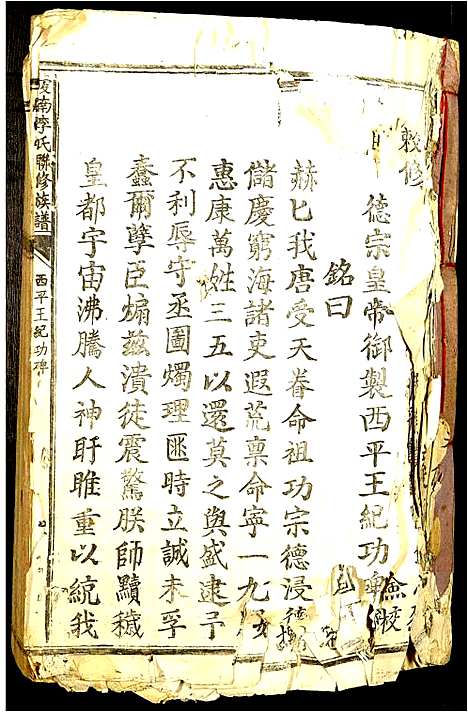 敕修
德宗皇帝御製西平王紀功碑
銘曰
赫匕我唐受天眷命祖功宗德浸
儲慶窮海諸吏遐荒禀命寧一九
惠康萬姓三五以還莫之與盛逮予
不利辱守丕圖燭理匪時立誠未孚
蠢爾孽臣煽茲潰徒震驚朕師黷穢
皇都宇宙沸騰人神盱睢重以統我
南李氏聯修族譜
西平王紀功碑